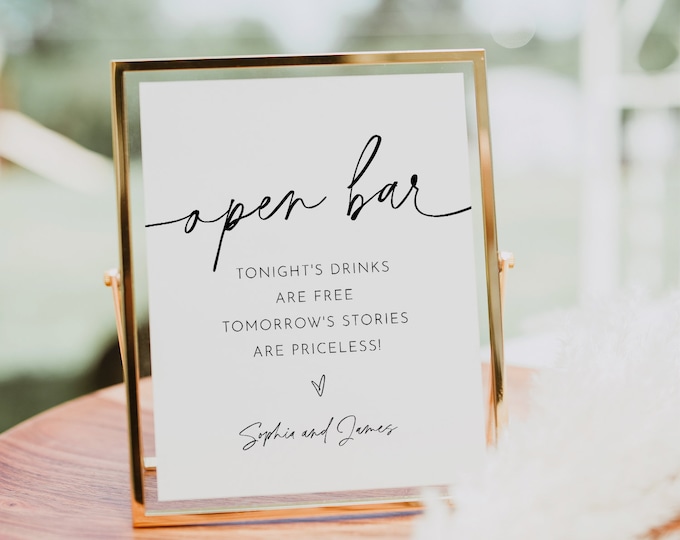 open bar
TONIGHT'S DRINKS
ARE FREE
TOMORROW'S STORIES
ARE PRICELESS!
Sophia and James